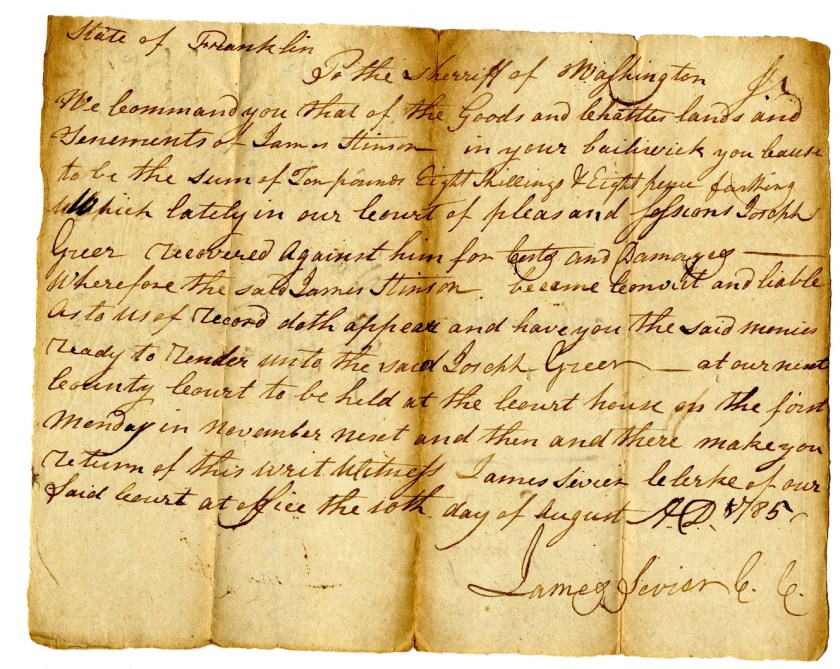 State of Franklin
To the Sherriff of Washington
We Command you that of the Goods and Chattles lands and
Tenements of James Stinson in your bailiwick you Cause
to be the Sum of Ten pounds Eight Shillings & Eight pence farthing
Which lately in our Court of pleas and Sessions Joseph
Greer recovered Against him for Costs and Damages
Wherefore the said James Stinson became Convict and liable
As to us of record doth appear and have you the said monies
ready to render unto the said Joseph Greer — at our next
County Court to be held at the Court house on the first
Monday in November next and then and there make you
return of this writ Witness James Sevier Clerke of our
Said Court at office the 10th day of August A.D. 1785
James Sevier C. C.